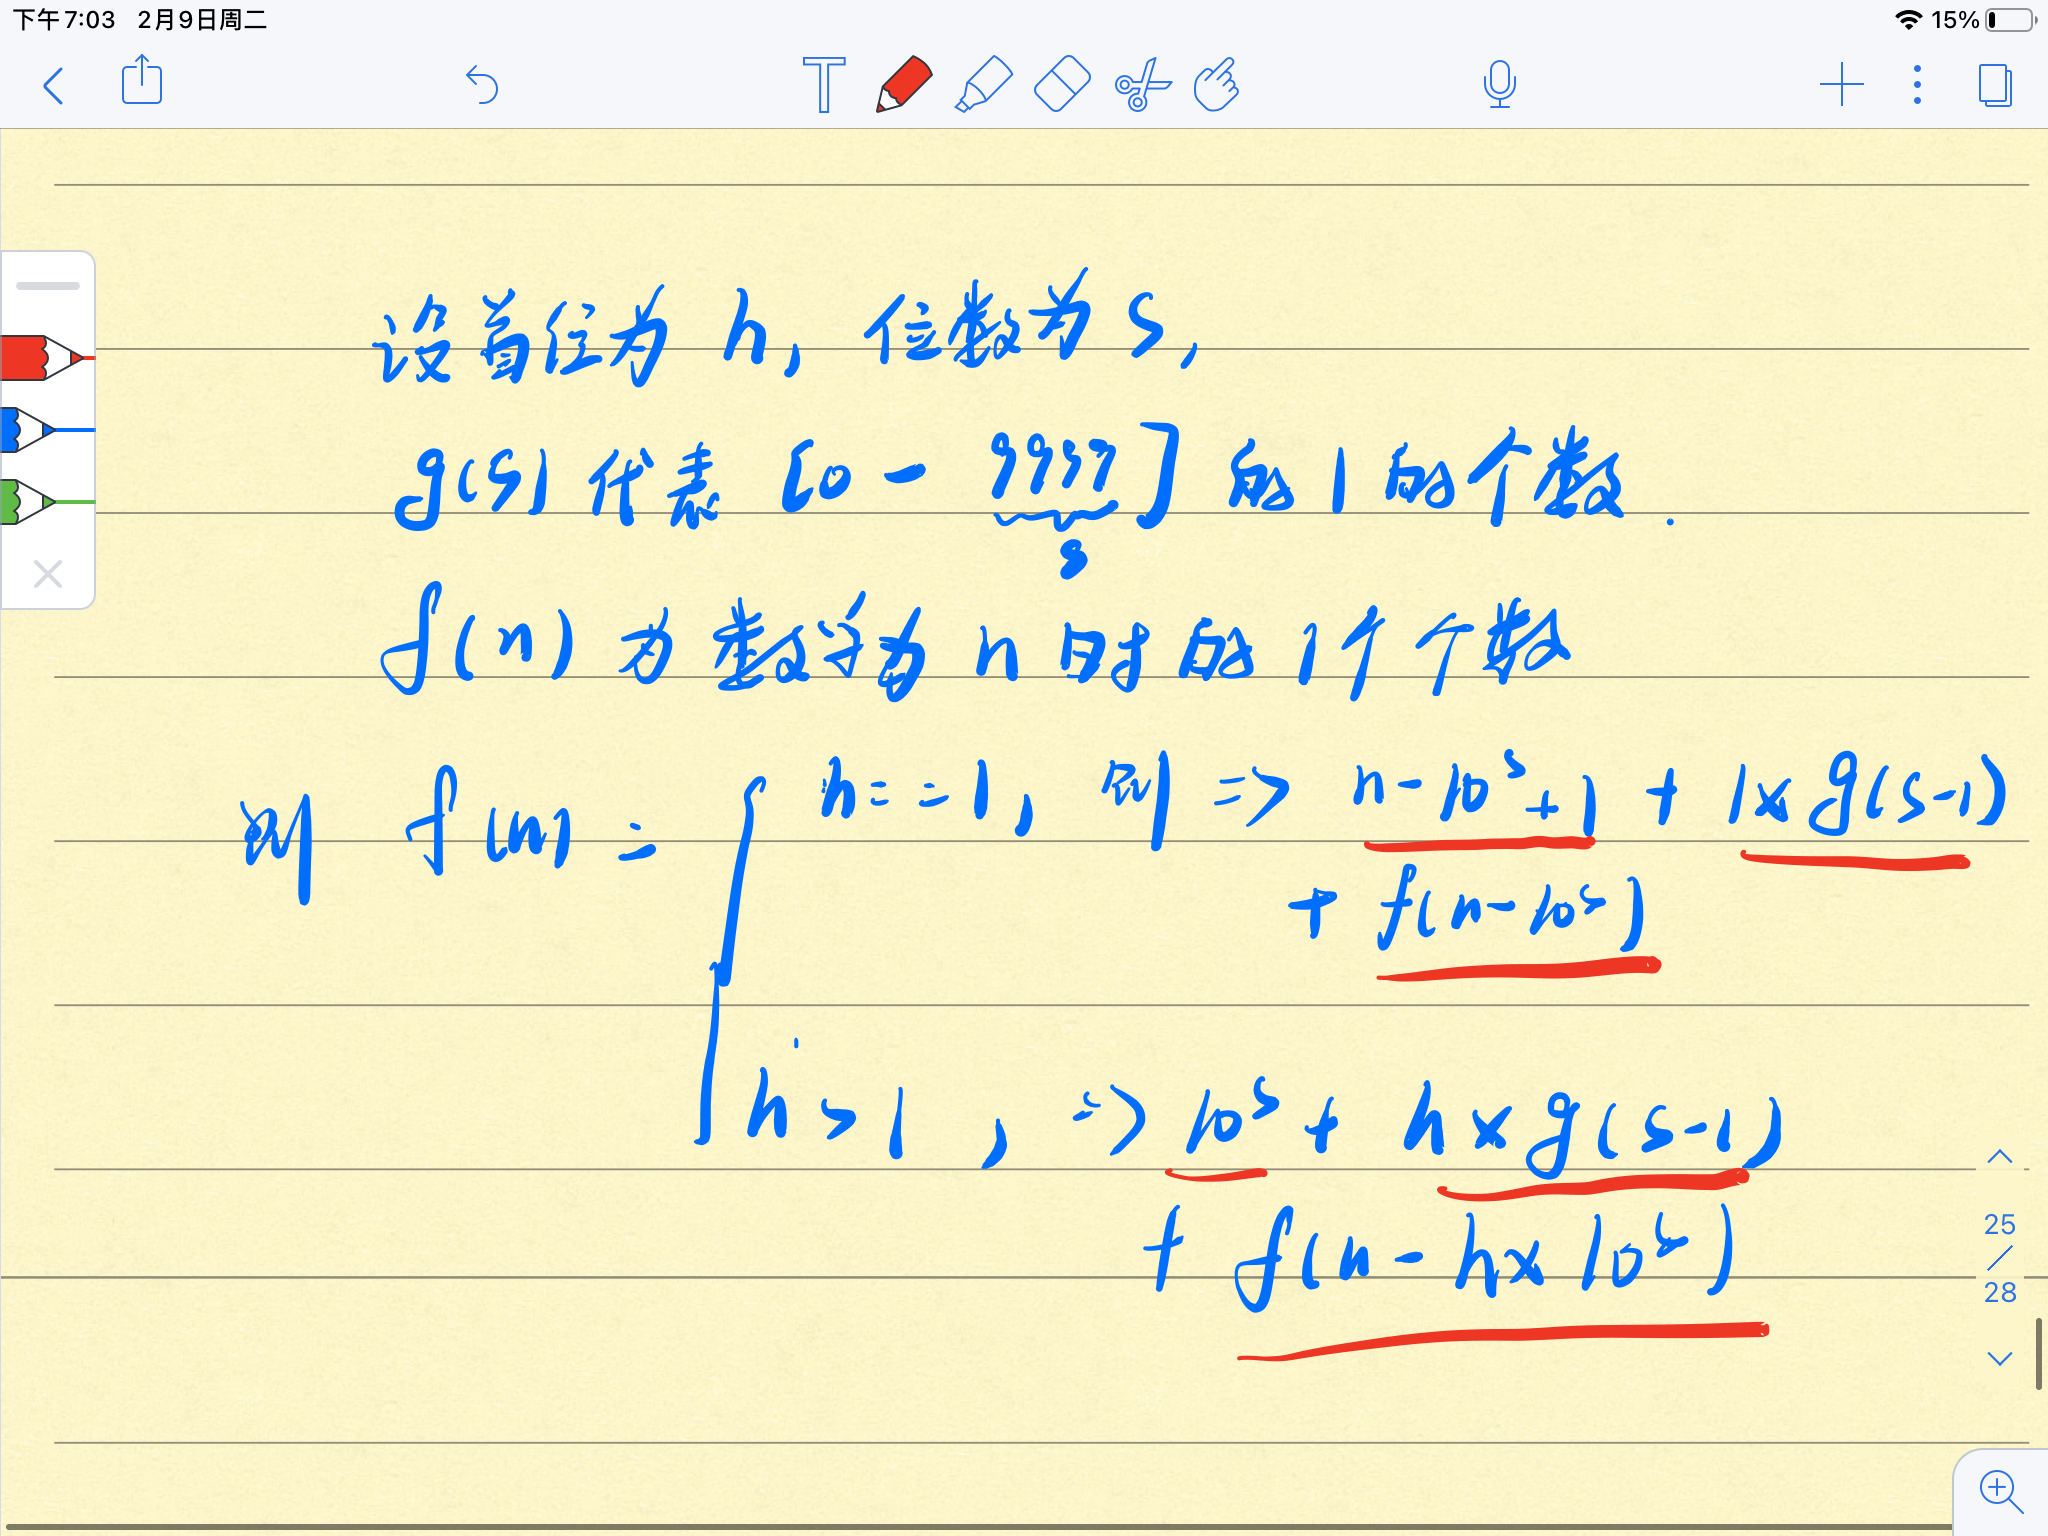 下午7:03 2月9日周二
15%
设首位为 h, 位数为 s,
g(s) 代表 [0 - 9999] 的 1 的个数.
s
f(n) 为数字为 n 时的 1个个数
则 f(n) = h==1, 则 => n-10^s+1 + 1×g(s-1)
+ f(n-10^s)
h>1, => 10^s + h×g(s-1)
+ f(n-h×10^s)
25
/
28